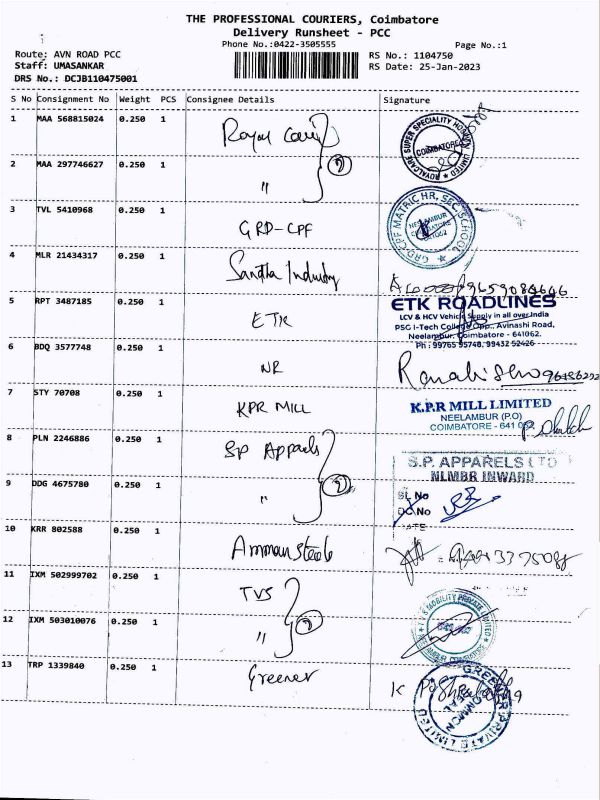 THE PROFESSIONAL COURIERS, Coimbatore
Delivery Runsheet - PCC
Phone No.:0422-3505555
Page No.:1
Route: AVN ROAD PCC
RS No.: 1104750
Staff: UMASANKAR
RS Date: 25-Jan-2023
DRS No.: DCJB110475001
S No Consignment No Weight PCS Consignee Details Signature
1 MAA 568815024 0.250 1 Royal Care
ROYALCARE SUPER SPECIALITY HOSPITAL LIMITED
COIMBATORE
2 MAA 297746627 0.250 1 "
2
3 TVL 5410968 0.250 1 GRD-CPF
G.R.D-CPF MATRIC HR. SEC. SCHOOL
NEELAMBUR
4 MLR 21434317 0.250 1 Sandha Industry
5 RPT 3487185 0.250 1 ETK
ETK ROADLINES
LCV & HCV Vehicle Supply in all over India
PSG I-Tech College Opp., Avinashi Road,
Neelambur, Coimbatore - 641062.
Ph : 99765 95748, 99432 52426
6 BDQ 3577748 0.250 1 NR
7 STY 70708 0.250 1 KPR MILL
K.P.R MILL LIMITED
NEELAMBUR (P.O)
COIMBATORE - 641 062
8 PLN 2246886 0.250 1 SP Apparels
S.P. APPARELS LTD
NLMBR INWARD
9 DDG 4675780 0.250 1 "
2
SL No
DC No
DATE
10 KRR 802588 0.250 1 Amman steels
11 IXM 502999702 0.250 1 TVS
12 IXM 503010076 0.250 1 "
2
MOBILITY PRIVATE LIMITED
13 TRP 1339840 0.250 1 Greener
PRIVATE LIMITED
COMMON
SEAL